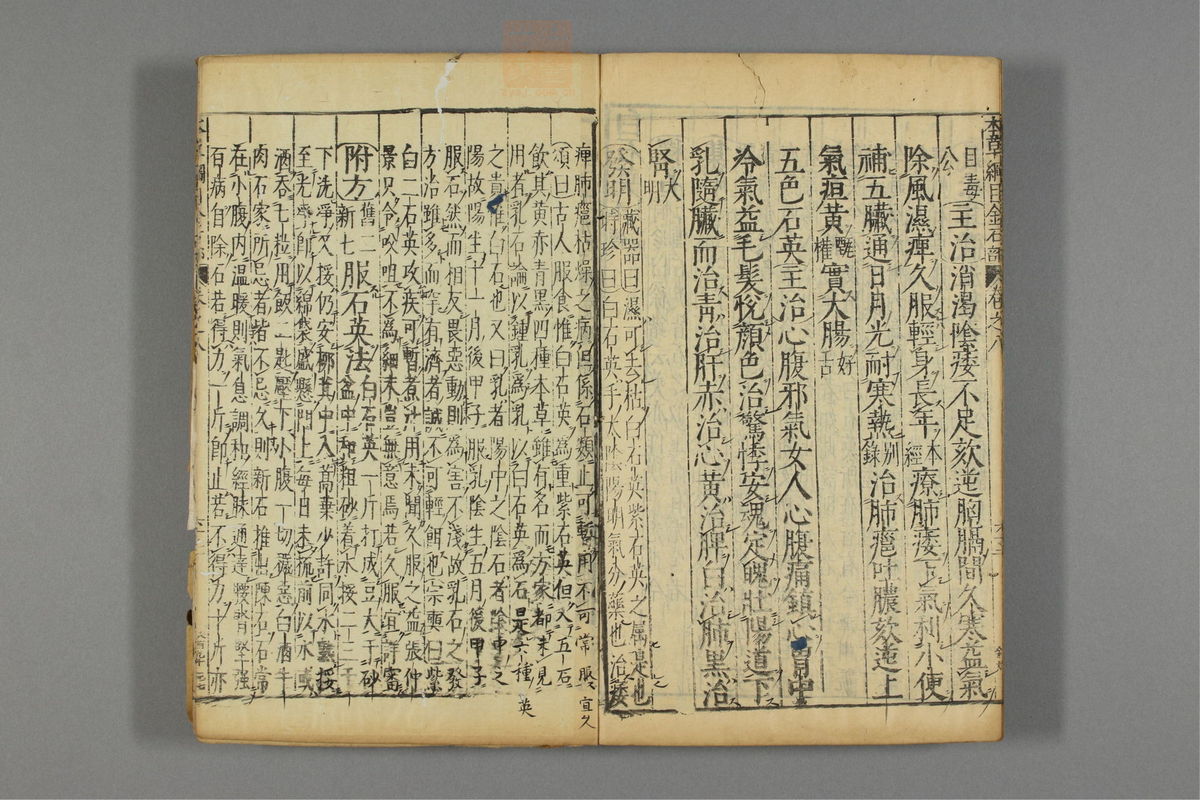 本草綱目金石部 卷之八
目毒
公
主治消渴陰痿不足欬逆胸膈間久寒益氣
除風濕痺久服輕身長年本經療肺痿下氣利小便
補五臟通日月光耐寒熱別錄治肺癰吐膿欬逆上
氣疸黃甄權實大腸好古
五色石英主治心腹邪氣女人心腹痛鎮心胃中
冷氣益毛髮悅顏色治驚悸安魂定魄壯陽道下
乳隨臟而治青治肝赤治心黃治脾白治肺黑治
腎大明
發明藏器曰濕可去枯白石英紫石英之屬是也
時珍曰白石英手太陰陽明氣分藥也治痿
痺肺癰枯燥之病但係石類止可暫用不可常服宜久
頌曰古人服食惟白石英為重紫石英但入五石
飲其黃赤青黑四種本草雖有名而方家都未見
用者乳石論以鍾乳為乳以白石英為石是六種英
之貴惟白石也又曰乳者陽中之陰石者陰中之
陽故陽生十一月後甲子服乳陰生五月後甲子
服石然而相反畏惡動則為害不淺故乳石之發
方治雖多而罕有濟者誠不可輕餌也宗奭曰紫
白二石英攻疾可暫煮汁用未聞久服之益張仲
景只令㕮咀不為細末豈無意焉若久服宜詳審
附方舊二新七服石英法白石英一斤打成豆大于砂
盆中和粗砂着水挼二三千
下洗淨又挼仍安柳箕中入蒿葉少許同水熟挼
至光淨即以綿袋盛懸門上每日未梳前以水或
酒吞七粒用飯二匙壓下小腹一切穢惡白酒牛
肉石家所忌者皆不忌久則新石推出陳石石常
在小腹內溫暖則氣息調和經脉通達腰腎堅強
百病自除石若得力一斤即止若不得力十斤亦